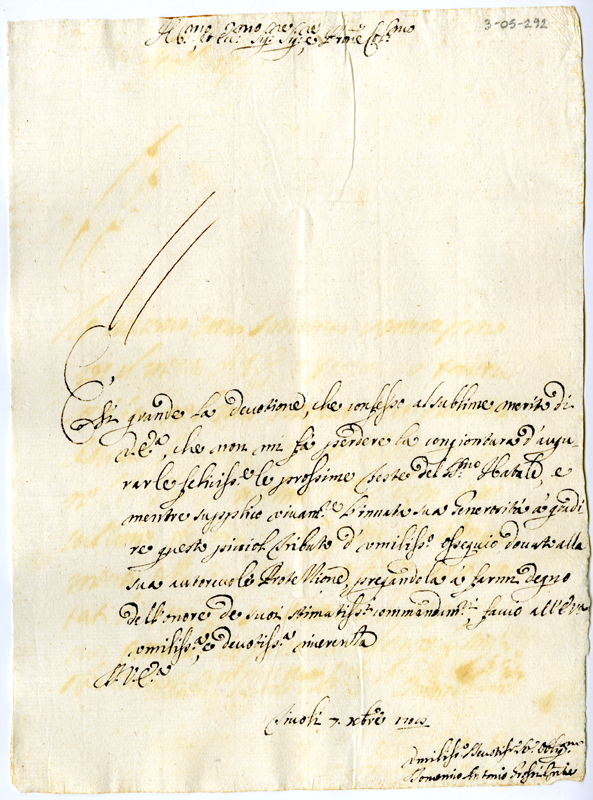 3-05-292
Ill.mo Ecc.mo Sig.re Sig.re Pne Col.mo
È si grande la devotione, che confesso al sublime merito di
V.E.a, che non mi fà perdere la congiontura d'augu-
rarle feliciss.e le prossime feste del S.mo Natale, e
mentre supplico vivam.te l'innata sua Generosità à gradi
re questo picciol tributo d'umiliss.o ossequio dovuto alla
sua autorevole Protettione, pregandola à farmi degno
dell'onore de suoi stimatiss.i commandam.ti, faccio all'E.V.
umiliss.a, e devotiss.a riverenza
D.V.E.a
Tivoli 7 Xbre
Umiliss.o Devotiss.o Obblig.mo
Domenico Antonio